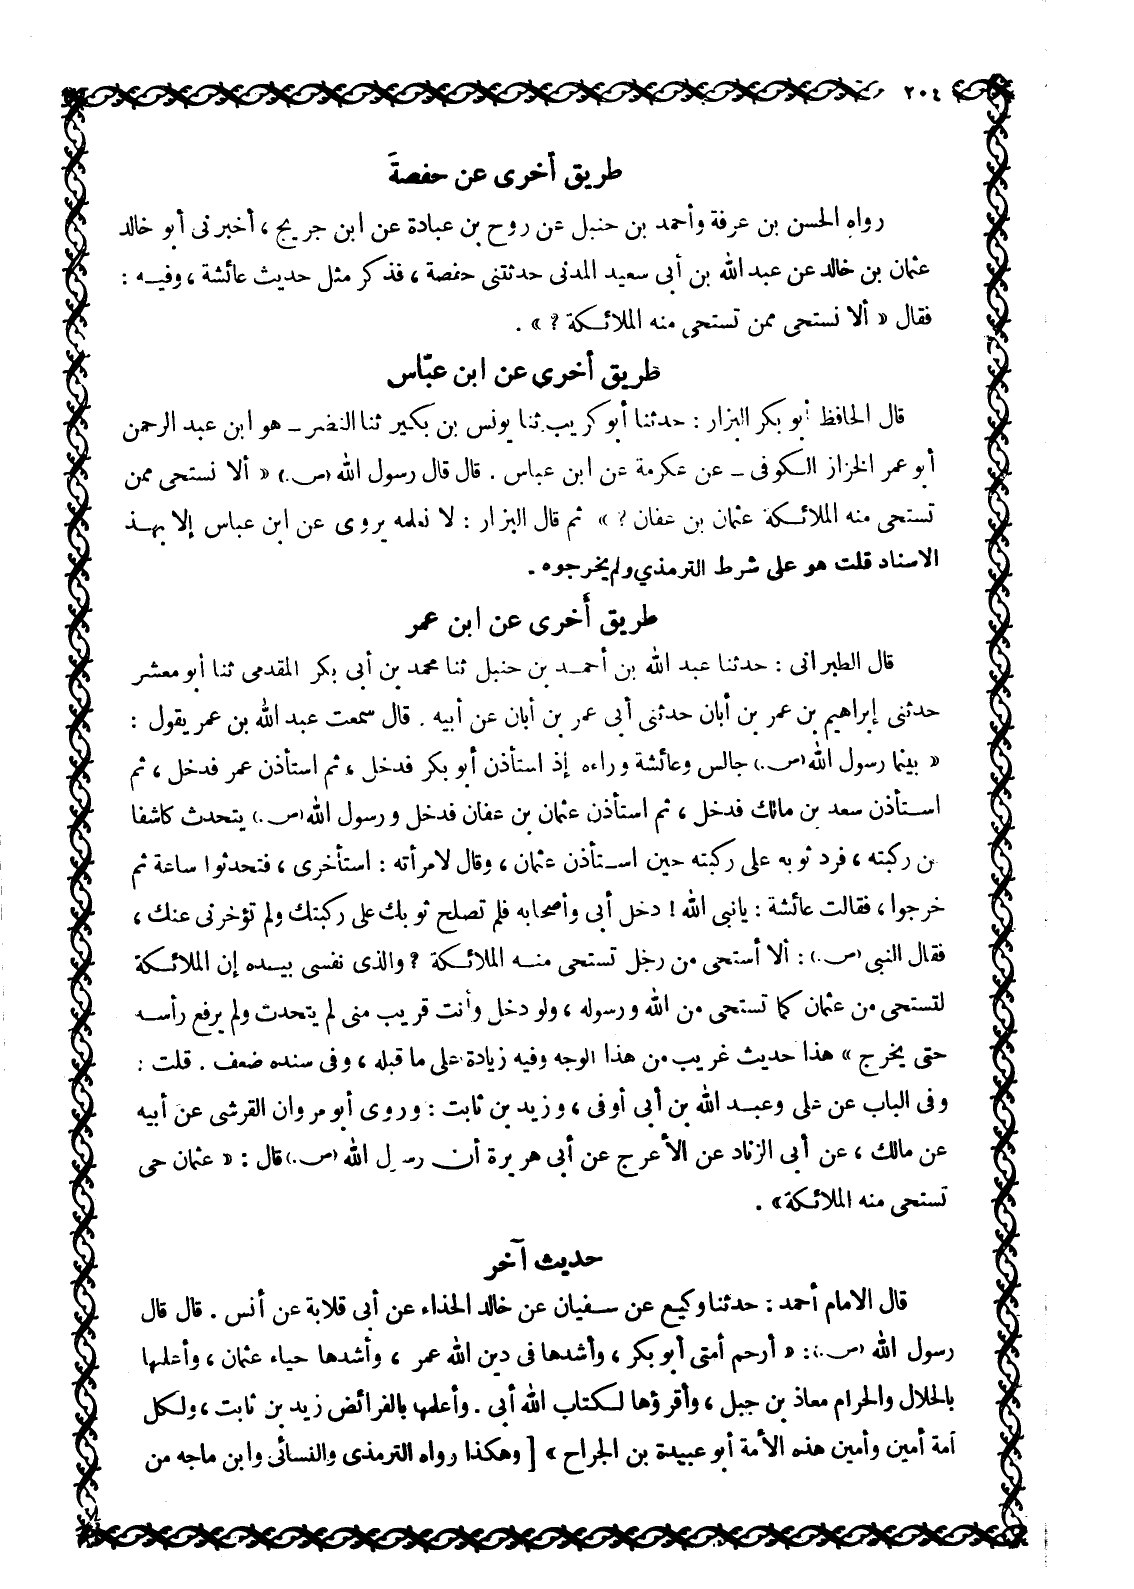 ٢٠٤
طريق أخرى عن حفصة
رواه الحسن بن عرفة وأحمد بن حنبل عن روح بن عبادة عن ابن جريج ، أخبرنى أبو خالد
عثمان بن خالد عن عبد الله بن أبى سعيد المدنى حدثتنى حفصة ، فذكر مثل حديث عائشة ، وفيـه :
فقال « ألا نستحى ممن تستحى منه الملائـكة ? » .
طريق أخرى عن ابن عبّاس
قال الحافظ أبو بكر البزار : حدثنا أبو كريب ثنا يونس بن بكير ثنا النضر ــ هو ابن عبد الرحمن
أبو عمر الخزاز الـكوفى ــ عن عكرمة عن ابن عباس . قال قال رسول الله (ص.) « ألا نستحى ممن
تستحى منه الملائـكة عثمان بن عفان ? » ثم قال البزار : لا نعلمه يروى عن ابن عباس إلا بهـذ
الاسناد قلت هو على شرط الترمذي ولم يخرجوه .
طريق أخرى عن ابن عمر
قال الطبرانى : حدثنا عبد الله بن أحمـد بن حنبل ثنا محمد بن أبى بكر المقدمى ثنا أبو معشر
حدثنى إبراهيم بن عمر بن أبان حدثنى أبى عمر بن أبان عن أبيه . قال سمعت عبد الله بن عمر يقول :
« بينما رسول الله (ص.) جالس وعائشة وراءه إذ استأذن أبو بكر فدخل ، ثم استأذن عمر فدخل ، ثم
اسـتأذن سعد بن مالك فدخل ، ثم استأذن عثمان بن عفان فدخل ورسول الله (ص.) يتحدث كاشفا
عن ركبته ، فرد ثوبه على ركبته حين اسـتأذن عثمان ، وقال لامرأته : استأخرى ، فتحدثوا ساعة ثم
خرجوا ، فقالت عائشة : يانبى الله ! دخل أبى وأصحابه فلم تصلح ثوبك على ركبتك ولم تؤخرنى عنك ،
فقال النبى (ص.) : ألا أستحى من رجل تستحى منـه الملائـكة ? والذى نفسى بيـده إن الملائـكة
لتستحى من عثمان كما تستحى من الله ورسوله ، ولو دخل وأنت قريب منى لم يتحدث ولم يرفع رأسـه
حتى يخرج » هذا حديث غريب من هذا الوجه وفيه زيادة على ما قبله ، وفى سنده ضعف . قلت :
وفى الباب عن على وعبـد الله بن أبى أوفى ، وزيد بن ثابت : وروى أبو مروان القرشى عن أبيه
عن مالك ، عن أبى الزناد عن الأعرج عن أبى هريرة أن رسول الله (ص.) قال : « عثمان حى
تستحى منه الملائـكة» .
حديث آخر
قال الامام أحمد : حدثنا وكيع عن سـفيان عن خالد الحذاء عن أبى قلابة عن أنس . قال قال
رسول الله (ص.): « أرحم أمتى أبو بكر ، وأشدها فى دين الله عمر ، وأشدها حياء عثمان ، وأعلمها
بالحلال والحرام معاذ بن جبل ، وأقرؤها لـكتاب الله أبى . وأعلمها بالفرائض زيد بن ثابت ، ولـكل
أمة أمين وأمين هذه الأمة أبو عبيدة بن الجراح » [ وهكذا رواه الترمذى والنسائى وابن ماجه من